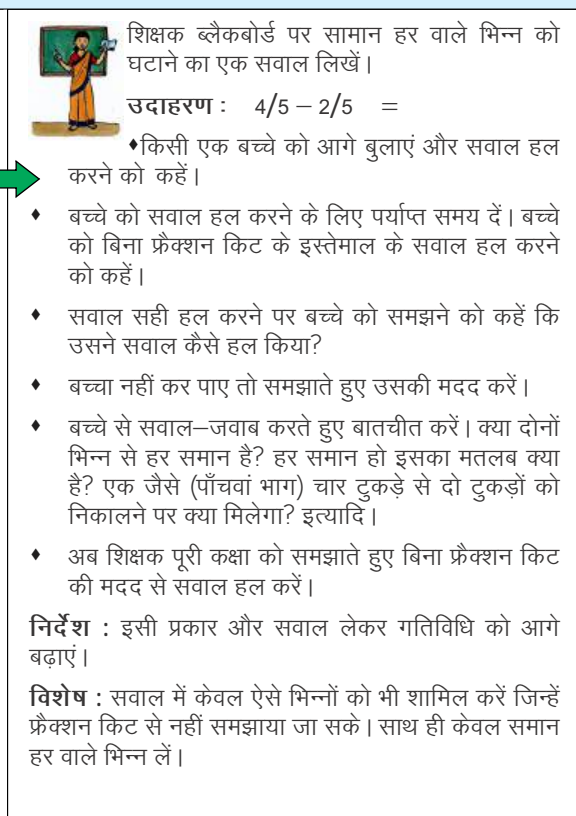 शिक्षक ब्लैकबोर्ड पर सामान हर वाले भिन्न को
घटाने का एक सवाल लिखें।
उदाहरण : 4/5 – 2/5 =
♦किसी एक बच्चे को आगे बुलाएं और सवाल हल
करने को कहें।
♦ बच्चे को सवाल हल करने के लिए पर्याप्त समय दें। बच्चे
को बिना फ्रैक्शन किट के इस्तेमाल के सवाल हल करने
को कहें।
♦ सवाल सही हल करने पर बच्चे को समझने को कहें कि
उसने सवाल कैसे हल किया?
♦ बच्चा नहीं कर पाए तो समझाते हुए उसकी मदद करें।
♦ बच्चे से सवाल–जवाब करते हुए बातचीत करें। क्या दोनों
भिन्न से हर समान है? हर समान हो इसका मतलब क्या
है? एक जैसे (पाँचवां भाग) चार टुकड़े से दो टुकड़ों को
निकालने पर क्या मिलेगा? इत्यादि।
♦ अब शिक्षक पूरी कक्षा को समझाते हुए बिना फ्रैक्शन किट
की मदद से सवाल हल करें।
निर्देश : इसी प्रकार और सवाल लेकर गतिविधि को आगे
बढ़ाएं।
विशेष : सवाल में केवल ऐसे भिन्नों को भी शामिल करें जिन्हें
फ्रैक्शन किट से नहीं समझाया जा सके। साथ ही केवल समान
हर वाले भिन्न लें।